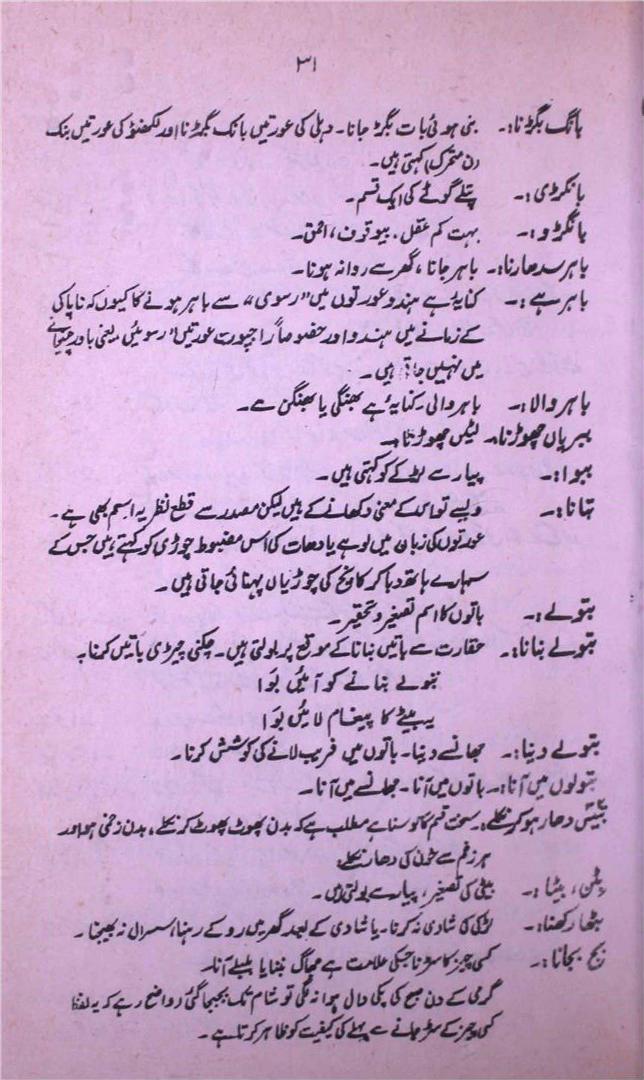 ۳۱
بانگ بگڑنا:۔ بنی ہوئی بات بگڑ جانا۔ دہلی کی عورتیں بانک بگڑنا اور لکھنؤ کی عورتیں بنک
دن متحرک) کہتی ہیں۔
بانکڑی:۔ پتلے گوٹے کی ایک قسم۔
بانگڑو:۔ بہت کم عقل۔ بیوقوف، احمق۔
باہر سدھارنا:۔ باہر جانا، گھر سے روانہ ہونا۔
باہر ہے:۔ کنایۃً ہے ہندو عورتوں میں "رسوی" سے باہر ہونے کا کیوں کہ ناپاکی
کے زمانے میں ہندو اور خصوصاً راجپوت عورتیں "رسوئیں یعنی باورچیخانے
میں نہیں جاتی ہیں۔
باہر والا:۔ باہر والی کنایۃً ہے بھنگی یا بھنگن سے۔
ببریاں چھوڑنا۔ لٹیں چھوڑنا۔
ببوا:۔ پیار سے لڑکے کو کہتی ہیں۔
بتانا:۔ ویسے تو اس کے معنی دکھانے کے ہیں لیکن مصدر سے قطع نظر یہ اسم بھی ہے۔
عورتوں کی زبان میں لوہے یا دھات کی اس مضبوط چوڑی کو کہتے ہیں جس کے
سہارے ہاتھ دبا کر کانچ کی چوڑیاں پہنائی جاتی ہیں۔
بتولے:۔ باتوں کا اسم تصغیر و تحقیر۔
بتولے بنانا:۔ حقارت سے باتیں بنانا کے موقع پر بولتی ہیں۔ چکنی چپڑی باتیں کہنا۔
بتولے بنانے کو آئیں بوا
یہ بیٹے کا پیغام لائیں بوا
بتولے دینا:۔ جھانسے دینا۔ باتوں میں فریب لانے کی کوشش کرنا۔
بتولوں میں آنا:۔ باتوں میں آنا۔ جھانسے میں آنا۔
بتیس دھار ہو کر نکلے:۔ سخت قسم کا کوسنا ہے مطلب ہے کہ بدن پھوٹ پھوٹ کر نکلے، بدن زخمی ہو اور
ہر زخم سے خون کی دھار نکلے
بٹن، بیٹا:۔ بیٹی کی تصغیر، پیار سے بولتی ہیں۔
بٹھا رکھنا:۔ لڑکی کی شادی نہ کرنا۔ یا شادی کے بعد گھر میں روکے رہنا، سسرال نہ بھیجنا۔
بج بجانا:۔ کسی چیز کا سڑنا جسکی علامت ہے جھاگ بننا یا بلبلے آنا۔
گرمی کے دن صبح کی پکی دال ہوا نہ لگی تو شام تک بجبجا گئی (واضح رہے کہ یہ لفظ
کسی چیز کے سڑ جانے سے پہلے کی کیفیت کو ظاہر کرتا ہے۔